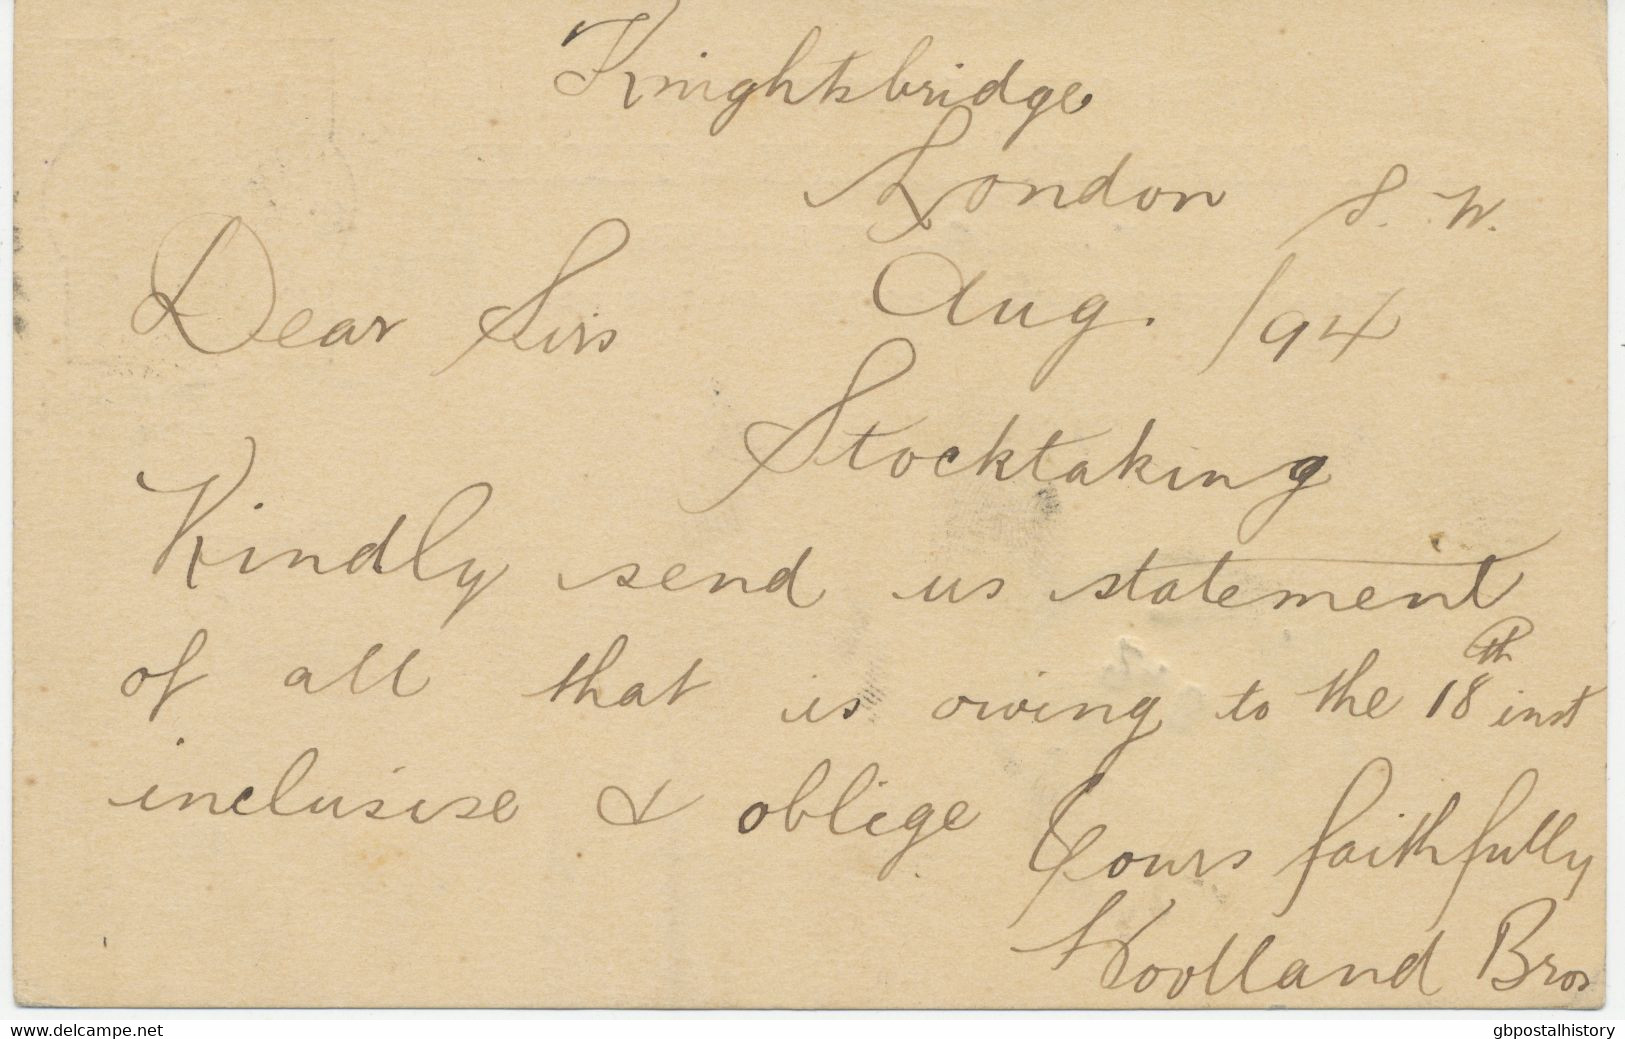 Knightsbridge
London S. W.
Dear Sirs Aug. /94
Stocktaking
Kindly send us statement
of all that is owing to the 18th inst
inclusise & oblige
Yours faithfully
Woolland Bros
www.delcampe.net gbpostalhistory